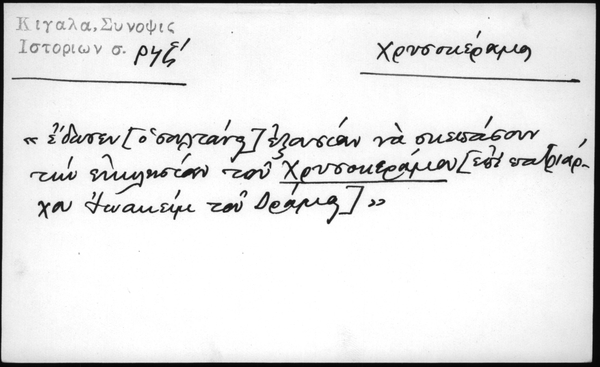 Κιγαλα, Συνοψις
Ιστοριων σ. ρνζ´
Χρυσοκέραμος
« ἔδωσεν [ὁ σουλτάνος] ἐξουσίαν νὰ σκεπάσουν
τὴν ἐκκλησίαν τοῦ Χρυσοκεράμου [ἐπὶ πατριάρ-
χου Ἰωακεὶμ τοῦ Δράμας] »